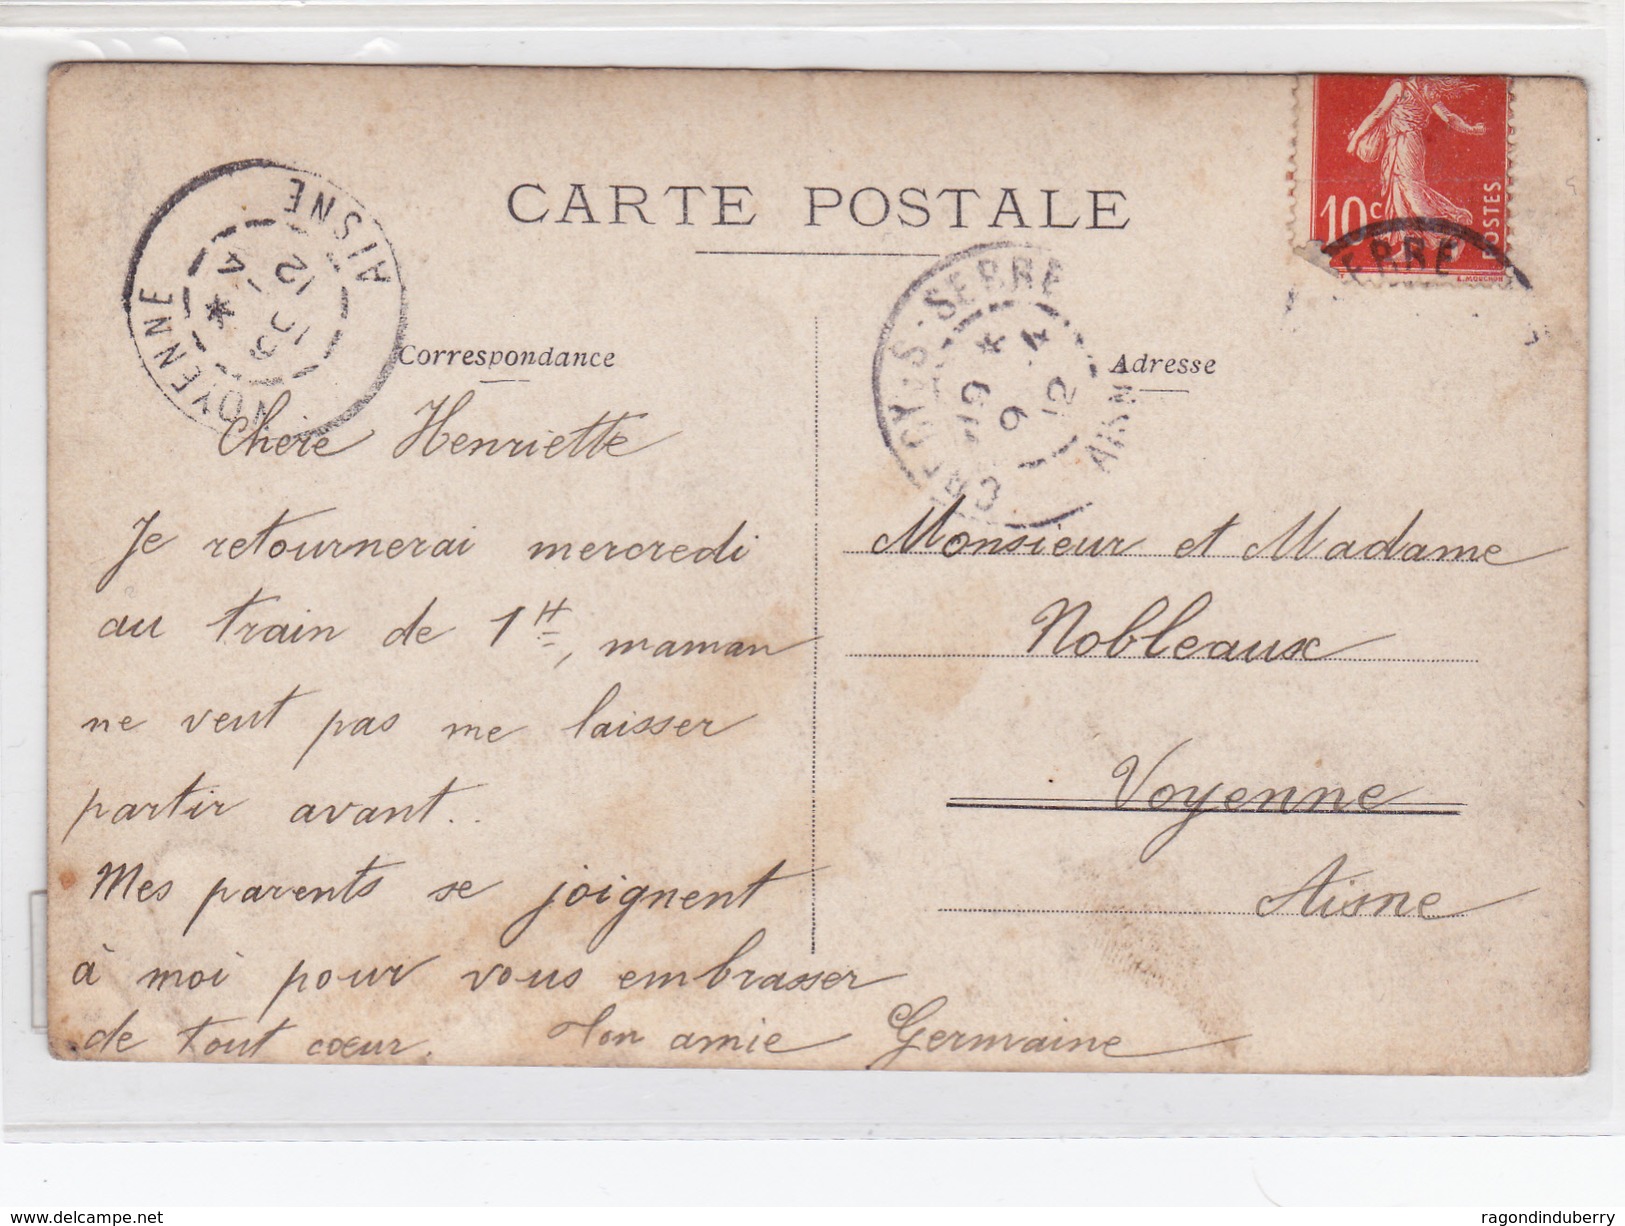 CARTE POSTALE
10c
POSTES
VOYENNE
AISNE
Correspondance
Adresse
Chère Henriette
Je retournerai mercredi
au train de 1H, maman
ne veut pas me laisser
partir avant..
Mes parents se joignent
à moi pour vous embrasser
de tout cœur. Ton amie Germaine
Monsieur et Madame
Nobleaux
Voyenne
Aisne
www.delcampe.net
ragondinduberry